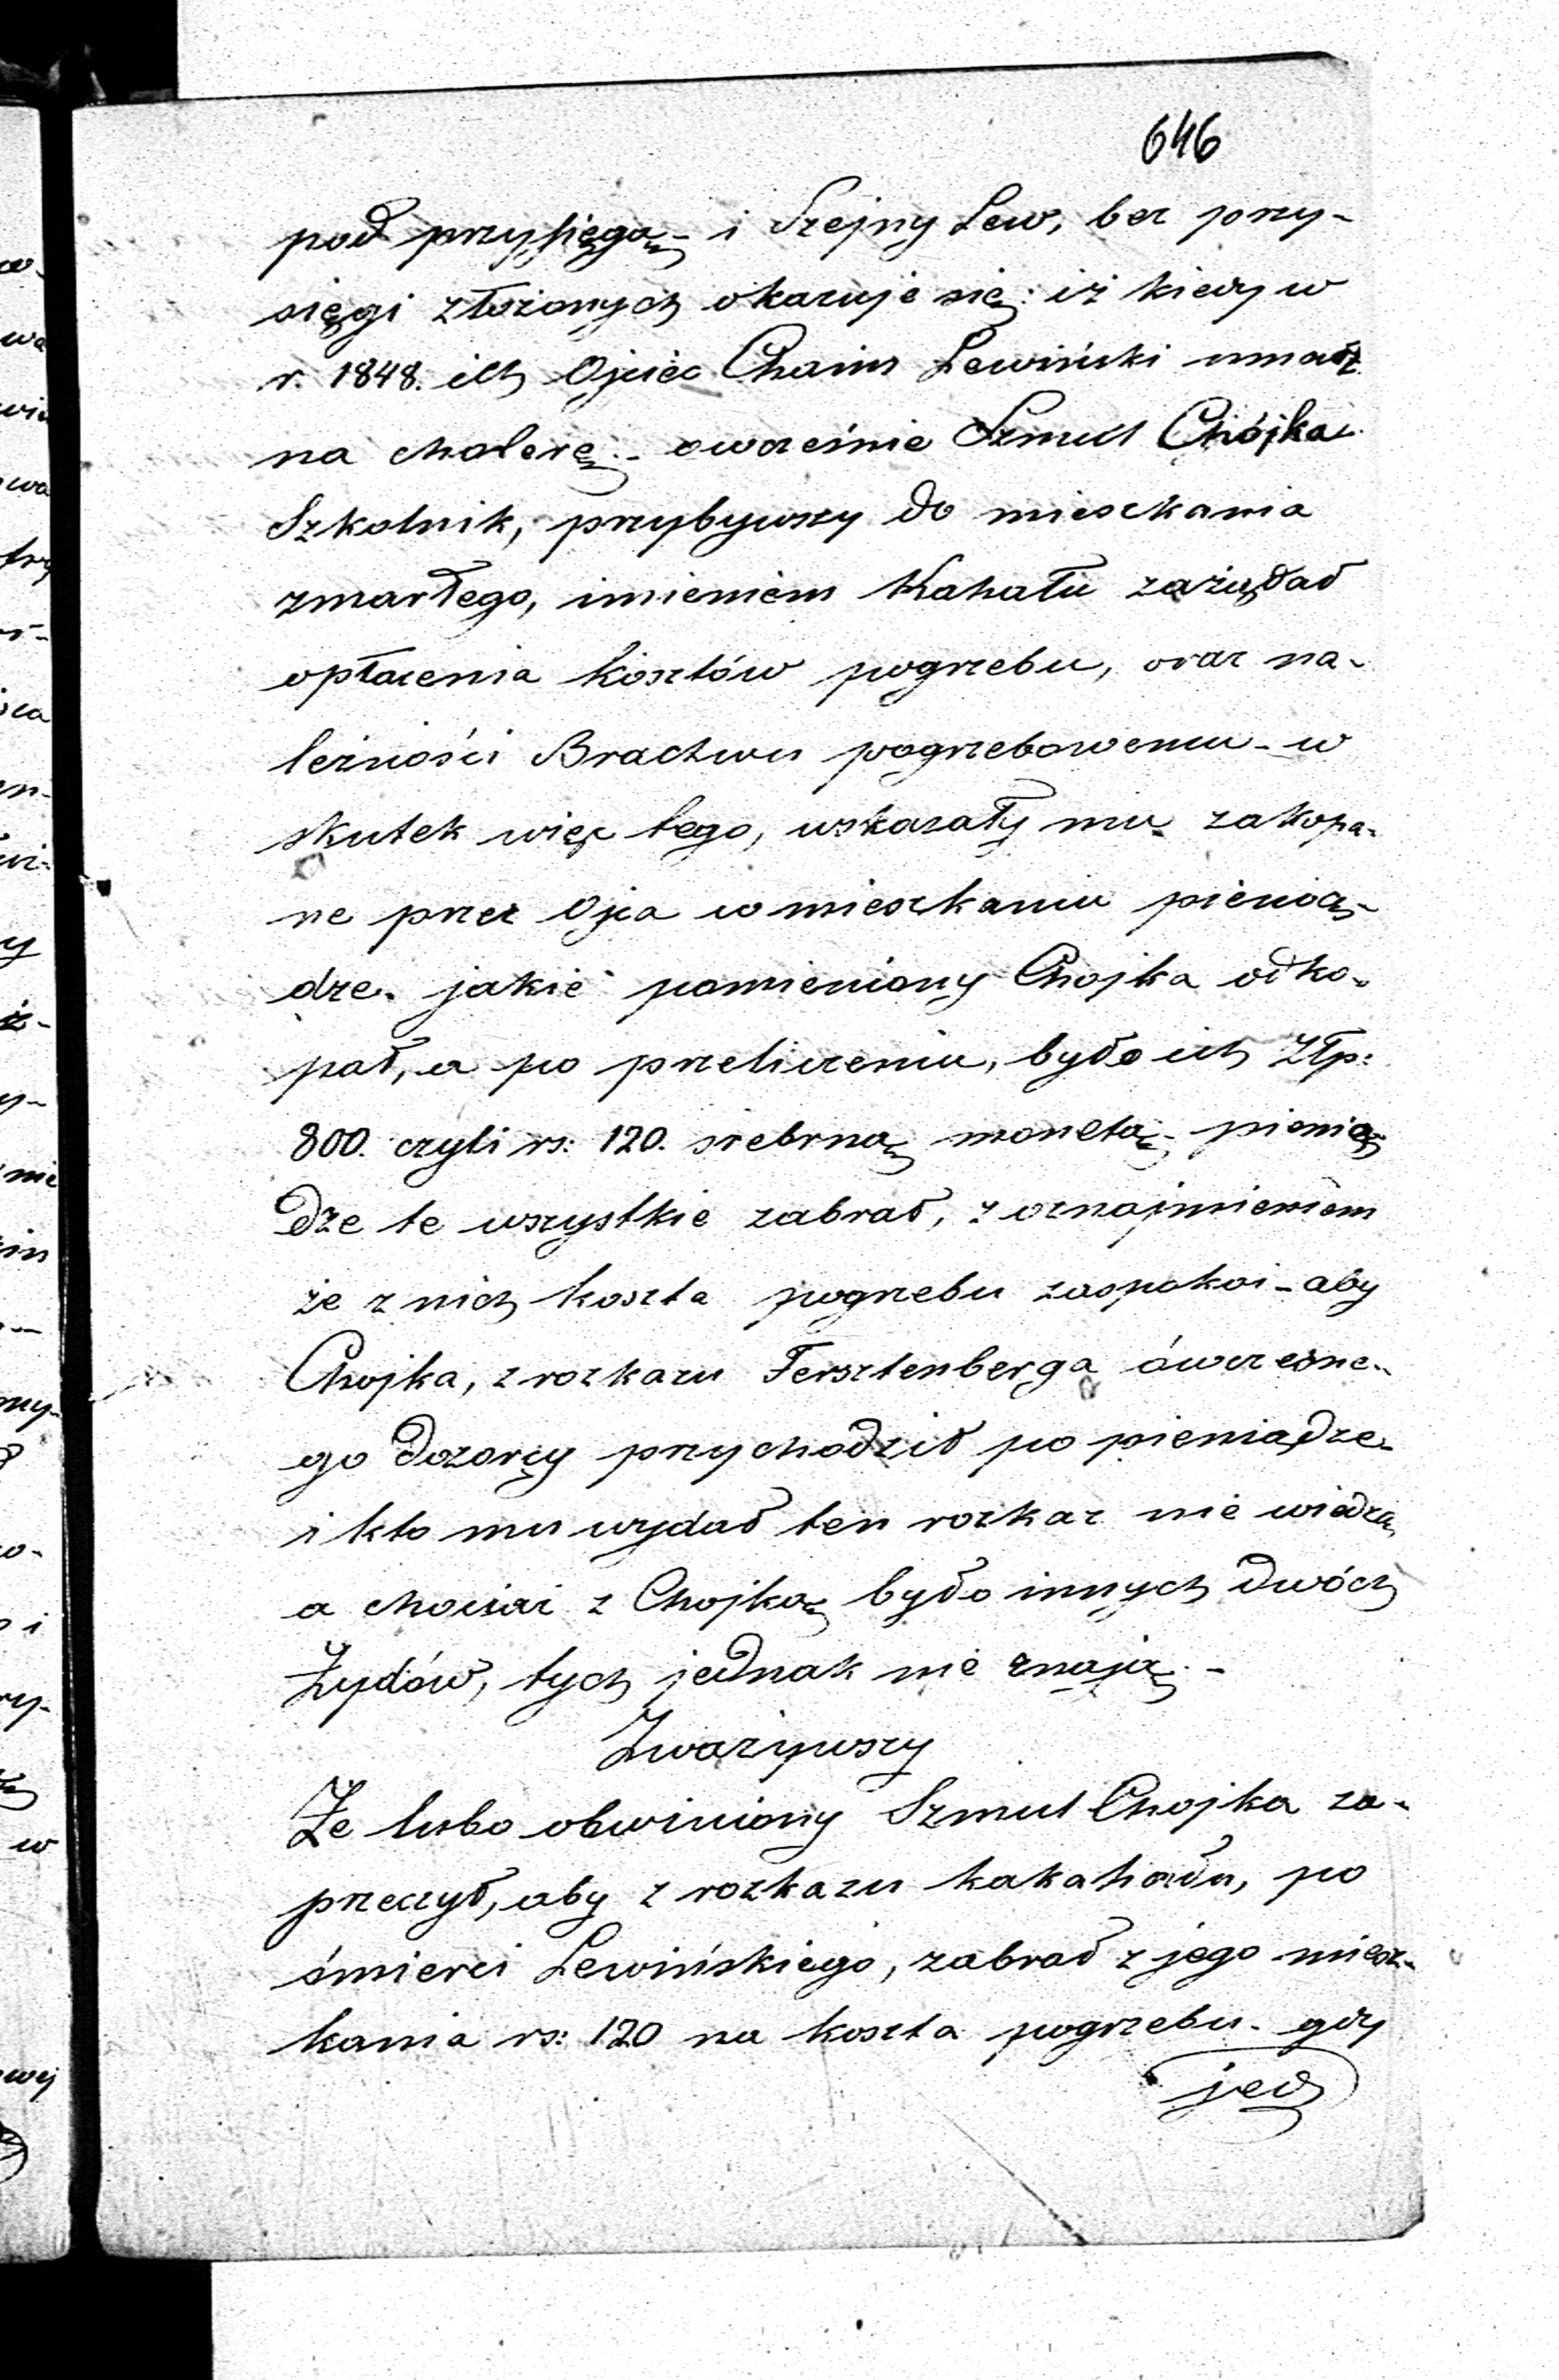 646
pod przysięgą - i Szejny Lew, bez przy-
sięgi złożonych okazuje się: iż kiedy w
r. 1848. ich Ojciec Chaim Lewiński umarł
na cholerę. - owcześnie Szmul Chójka
Szkolnik, przybywszy do mieszkania
zmarłego, imieniem Kahału zażądał
opłacenia kosztów pogrzebu, oraz na-
leżności Bractwu pogrzebowemu - w
skutek więc tego, wskazały mu zakopa-
ne przez Ojca w mieszkaniu pienią-
dze. jakie pomieniony Chojka odko-
pał, a po przeliczeniu, było ich Złp:
800. czyli rs: 120. srebrną monetą - pienią
dze te wszystkie zabrał, z oznajmieniem
że z nich koszta pogrzebu zaspokoi - aby
Chojka, z rozkazu Fersztenberga ówczesne-
go dozorcy przychodził po pieniądze
i kto mu wydał ten rozkaz nie wiedzą
a chociaż z Chojką było innych dwóch
Żydów, tych jednak nie znają. -
Zważywszy
Że lubo obwiniony Szmul Chojka za-
przeczył, aby z rozkazu kakahału, po
śmierci Lewińskiego, zabrał z jego miesz-
kania rs: 120 na koszta pogrzebu. gdy
jed